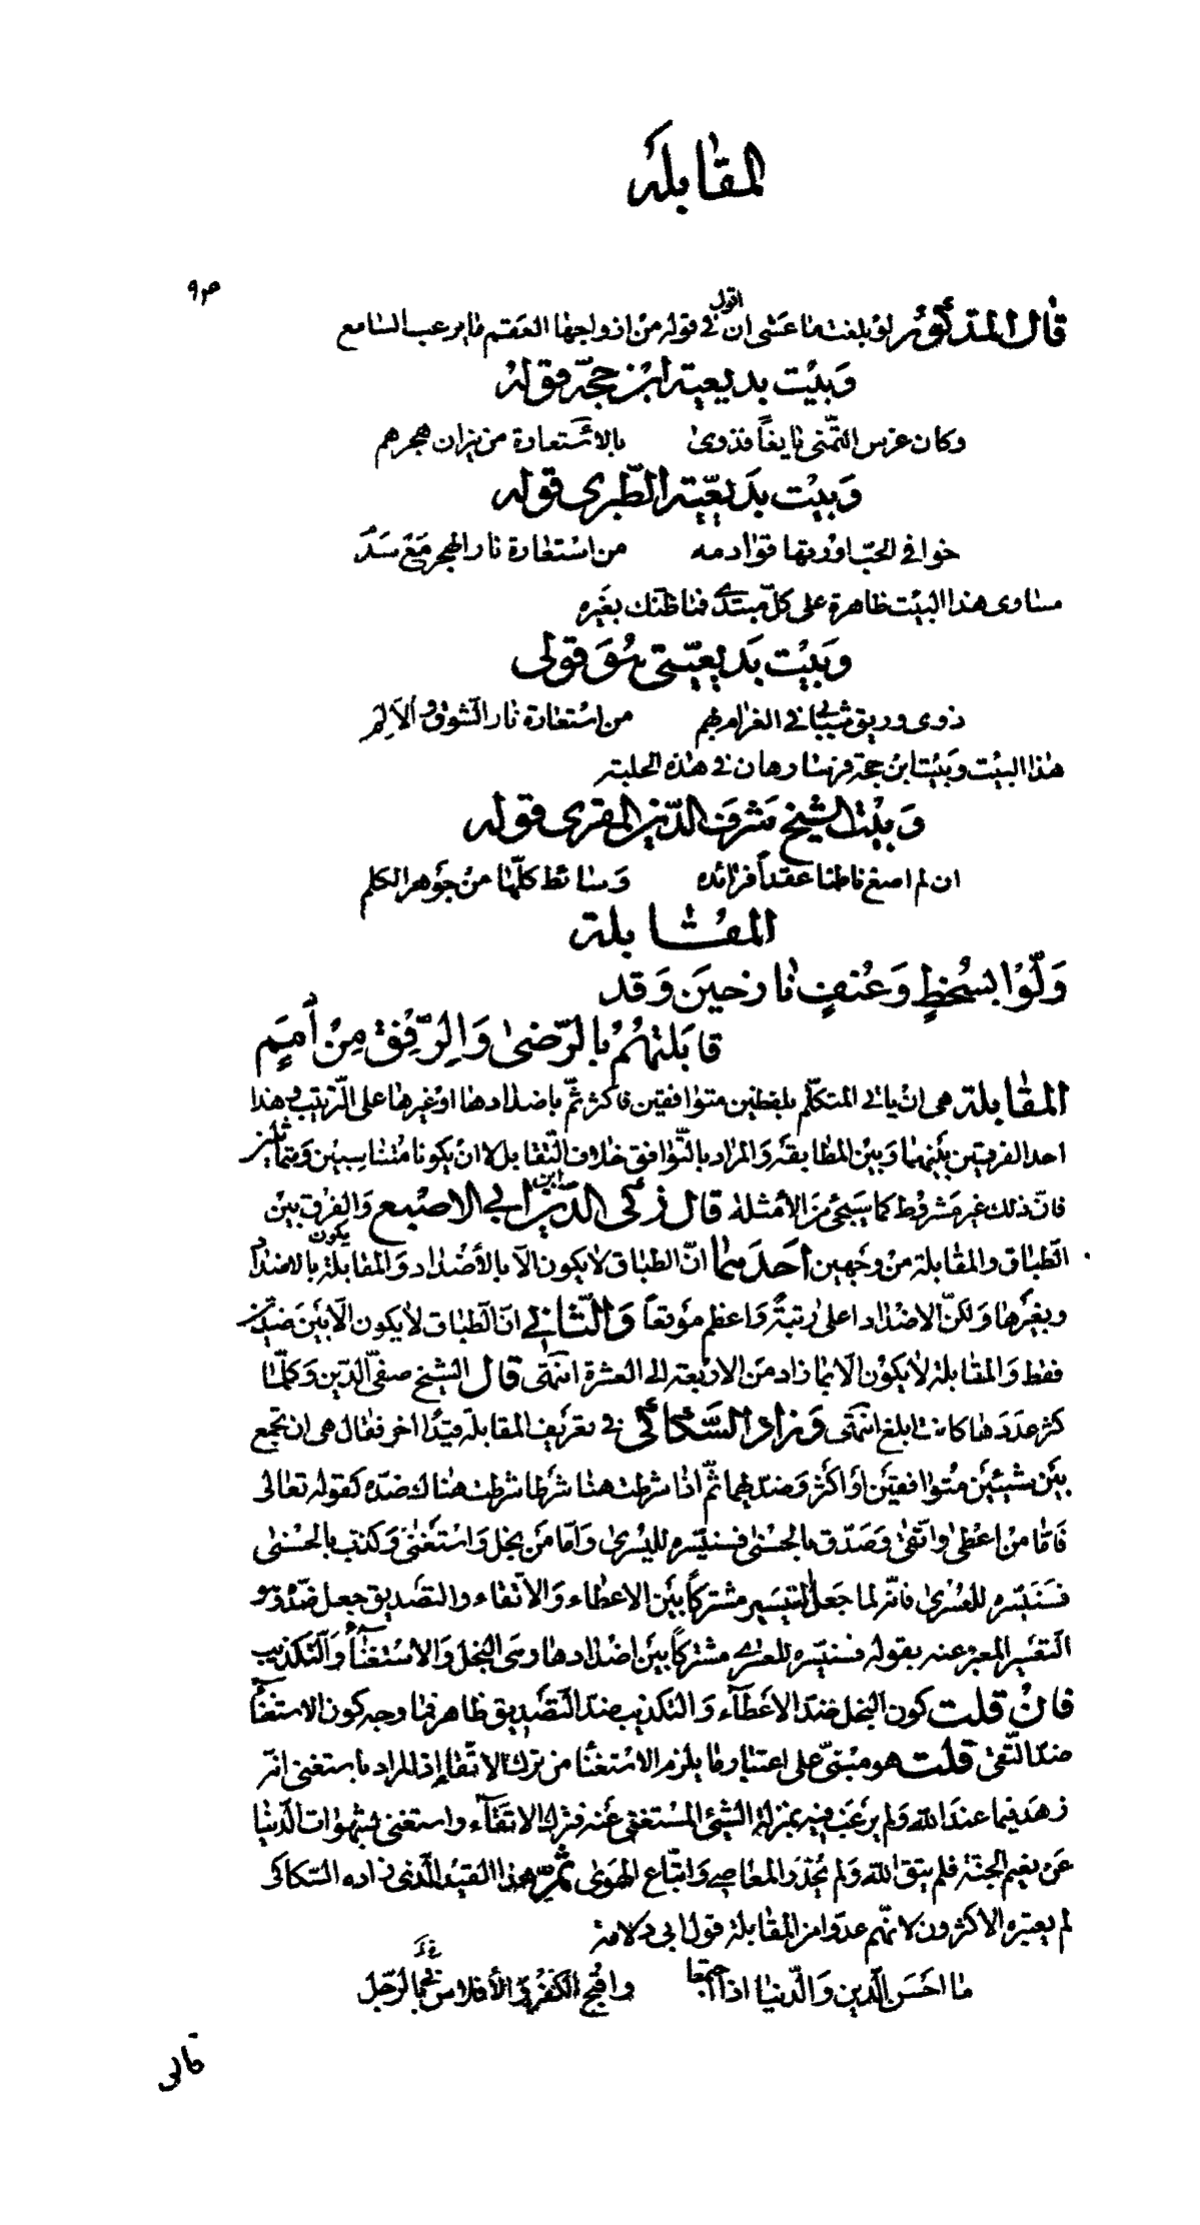 المقابلة
٩٣
قال المذكور لو بلغت ما عسى ان اقول في قوله من ازواجها العقم ما يرعب السامع
وبيت بديعية ابن حجة قوله
وكان غرس التمني يانعا فذوى بالاستعارة من نيران هجرهم
وبيت بديعية الطبري قوله
خوافي الحب اورتها قوادمه من استعارة نار الهجر مع سدم
مساوى هذا البيت ظاهرة على كل مبتدئ فما ظنك بغيره
وبيت بديعيتي هو قولي
ذوى وريق شبابي في الغرام بهم من استعارة نار الشوق والالم
هذا البيت وبيت ابن حجة فرسا رهان في هذه الحلبة
وبيت الشيخ شرف الدين المقري قوله
ان لم اصغ ناظما عقدا فرائده وسائط كلها من جوهر الكلم
المقابلة
وَلَّوْا بسُخطٍ وَعُنفٍ نازحينَ وَقد
قابَلتهُمْ بالرّضى وَالرِّفق مِنْ أَمَمٍ
المقابلة هي ان ياتي المتكلم بلفظين متوافقين فاكثر ثم باضدادها او غيرها على الترتيب وهذا
احد الفرقين بينها وبين المطابقة والمراد بالتوافق خلاف التقابل لا ان يكونا متناسبين ومتماثلين
فان ذلك غير مشروط كما سيجئ من الأمثلة قال زكى الدين ابن ابي الاصبع والفرق بين
الطباق والمقابلة من وجهين احدهما ان الطباق لا يكون الا بالأضداد والمقابلة يكون بالاضداد
وبغيرها ولكن الاضداد اعلى رتبة واعظم موقعا والثاني ان الطباق لا يكون الا بين ضدين
فقط والمقابلة لا يكون الا بما زاد من الاربعة الى العشرة انتهى قال الشيخ صفي الدين وكلما
كثر عددها كانت ابلغ انتهى وزاد السكاكي في تعريف المقابلة قيدا اخر فقال هي ان تجمع
بين شيئين متوافقين او اكثر وضديهما ثم اذا شرطت هنا شرطا شرطت هناك ضده كقوله تعالى
فاما من اعطى واتقى وصدق بالحسنى فسنيسره لليسرى واما من بخل واستغنى وكذب بالحسنى
فسنيسره للعسرى فانه لما جعل التيسير مشتركا بين الاعطاء والاتقاء والتصديق جعل ضده وهو
التعسير المعبر عنه بقوله فسنيسره للعسرى مشتركا بين اضدادها وهي البخل والاستغناء والتكذيب
فان قلت كون البخل ضد الاعطاء والتكذيب ضد التصديق ظاهر فما وجه كون الاستغناء
ضد التقى قلت هو مبني على اعتبار ما يلزم الاستغنا من ترك الاتقا إذ المراد باستغنى انه
زهد فيما عند الله ولم يرغب فيه بمنزلة الشئ المستغنى عنه فترك الاتقاء واستغنى بشهوات الدنيا
عن نعيم الجنة فلم يتق الله ولم يحذر المعاصي واتباع الهوى ثم هذا القيد الذي زاده السكاكى
لم يعتبره الاكثرون لانهم عدوا من المقابلة قول ابي دلامة
ما احسن الدين والدنيا اذا اجتمعا واقبح الكفر والأفلاس بالرجل
قالى